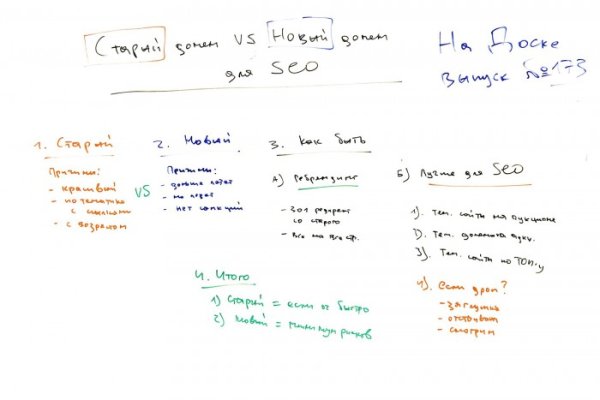 Старый домен VS Новый домен
для SEO
На Доске
выпуск №173
1. Старый
Причины:
- красивый
- по тематике
с ссылками
- с возрастом
VS
2. Новый
Причины:
- дольше
- не
- нет санкций
3. Как быть
А) Ребрендинг
- 301 редирект
со старого
- Все на все стр.
Б) Лучше для SEO
1). Тем. сайты на аукционе
2). Тем. домены
3). Тем. сайты по ТОП-у
4). Если дроп?
- заглушка
- отстаиваем
- смотрим
4. Итого
1) Старый = если оч быстро
2) Новый = минимум рисков